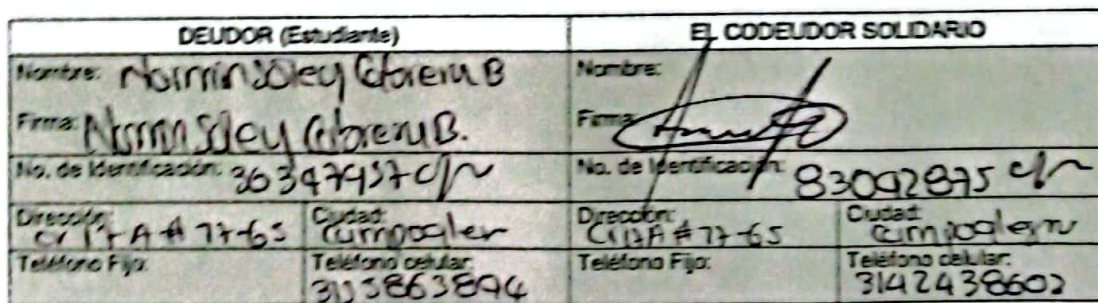 DEUDOR (Estudiante) EL CODEUDOR SOLIDARIO
Nombre: Norminsoley Cabrera B Nombre:
Firma: Norminsoley Cabrera B. Firma:
No. de Identificación: 36347957 c/v No. de Identificación: 83092875 c/v
Dirección: Cr 17 A # 77-65 Ciudad: Campoaler Dirección: Cr 17A # 77-65 Ciudad:
Teléfono Fijo: Teléfono celular: Teléfono Fijo: Teléfono celular:
3142438602